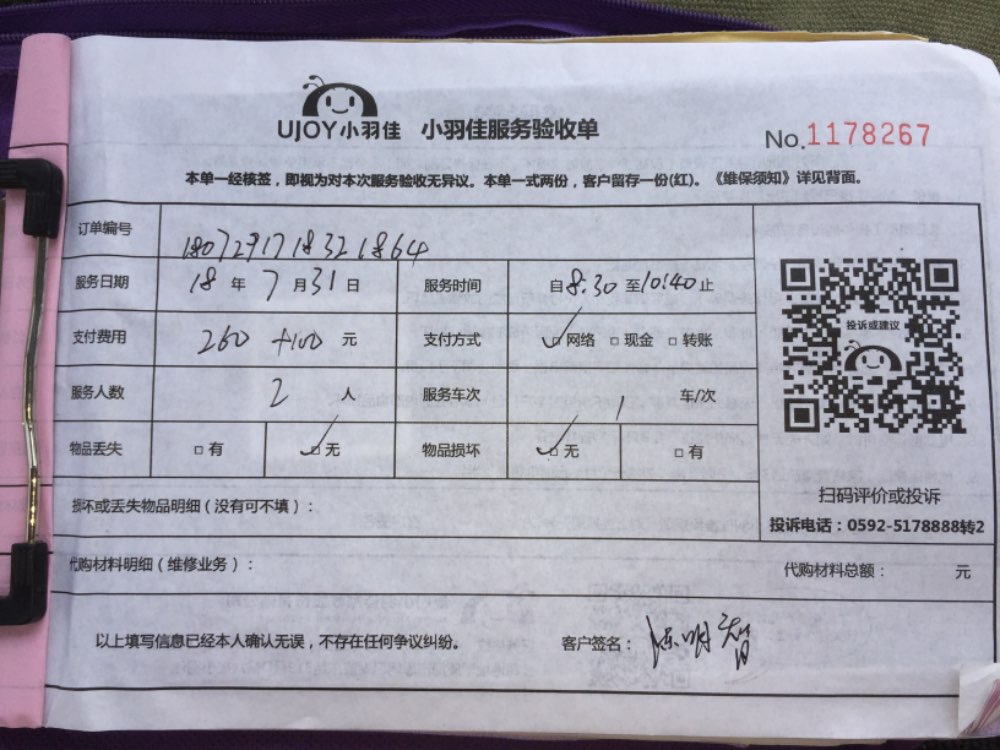 UJOY小羽佳 小羽佳服务验收单
No.1178267
本单一经核签，即视为对本次服务验收无异议。本单一式两份，客户留存一份(红)。《维保须知》详见背面。
订单编号 1807291718321864
服务日期 18 年 7 月 31 日 服务时间 自 8:30 至 10:40 止
支付费用 260 +100 元 支付方式 ☑网络 □现金 □转账
服务人数 2 人 服务车次 1 车/次
物品丢失 □有 ☑无 物品损坏 ☑无 □有
投诉或建议
扫码评价或投诉
投诉电话：0592-5178888转2
损坏或丢失物品明细（没有可不填）：
代购材料明细（维修业务）： 代购材料总额： 元
以上填写信息已经本人确认无误，不存在任何争议纠纷。 客户签名： 陈明